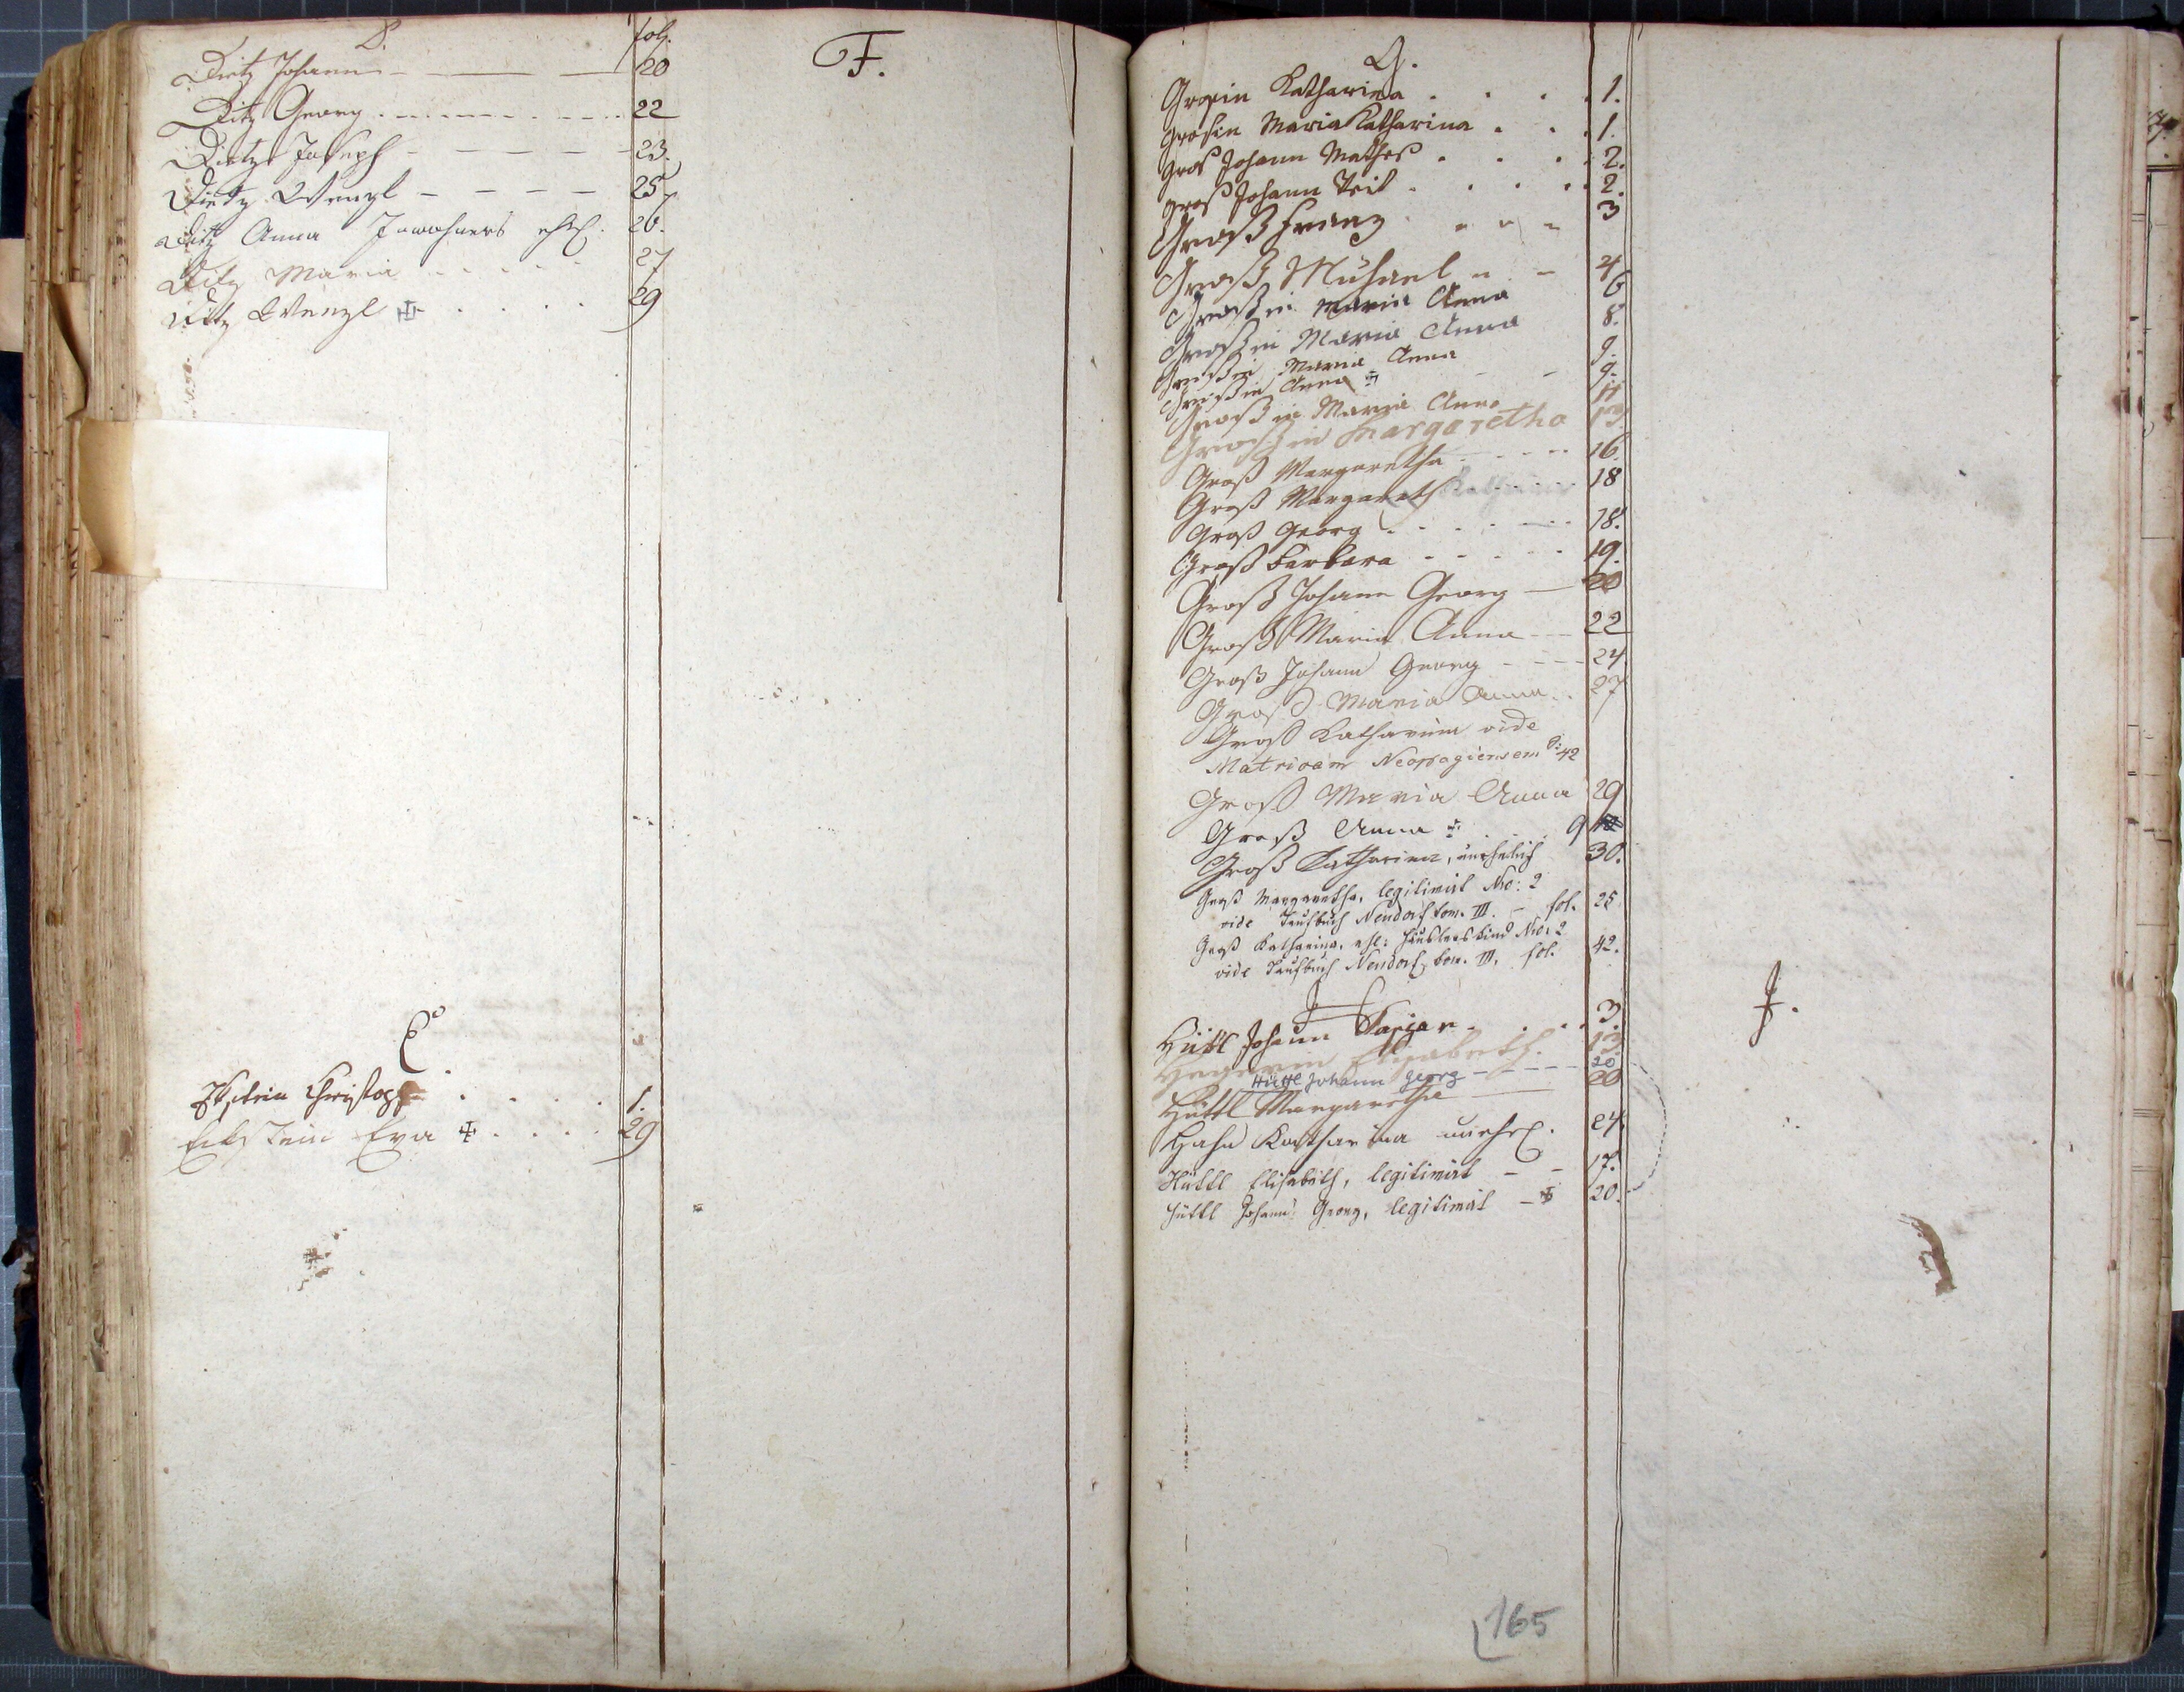 D. fol.
Dietz Johann 20
Ditz Georg 22
Dietz Joseph 23.
Dietz Wenzl 25
Ditz Anna Inwohners ehel. 26.
Ditz Maria 27
Ditz Wenzl 29
E
Ekstein Christoph 1.
Eckstein Eva 29
F.
G.
Grosin Katharina 1.
Grosin Maria Katharina 1.
Gros Johann Mathes 2.
Groß Johann Veit 2.
Groß Franz 3
Groß Michael 4
Großin Maria Anna 6
Großin Maria Anna 8.
Großin Maria Anna 9.
Großin Anna 9.
Großin Maria Anna 11
Großin Margaretha 13
Groß Margaretha 16
Groß Margareth 18
Groß Georg 18.
Groß Barbara 19.
Groß Johann Georg 20
Groß Maria Anna 22
Groß Johann Georg 24
Groß Maria Anna 27
Groß Katharina vide
Matricam Neopagiensem 42
Groß Maria Anna 29
Groß Anna 9
Groß Katharina, unehelich 30.
Groß Margaretha, legitimirt Nro: 2
vide Taufbuch Neudorf tom. III. fol. 25
Groß Katharina, ehl: Häuslerskind Nro: 2
vide Taufbuch Neudorf, tom. III. fol. 42.
H
Hüttl Johann Kaspar 3.
Elisabeth. 13
Hüttl Johann Georg 20
Hüttl Margaretha 20
Hahn Katharina unehel. 24.
Hüttl Elisabeth, legitimirt 17.
Hüttl Johann Georg, legitimirt 20.
J.
165